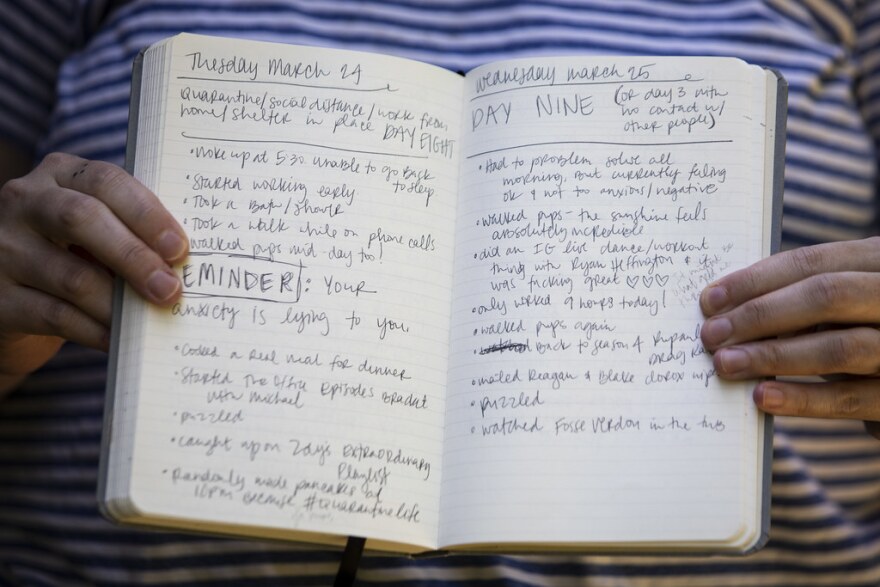 Tuesday March 24
Quarantine/social distance/work from
home/shelter in place DAY EIGHT
• Woke up at 5:30 unable to go back
to sleep
• Started working early
• Took a Bath/shower
• Took a walk while on phone calls
walked pups mid-day too!
EMINDER: Your
anxiety is lying to you.
• Cooked a real meal for dinner
• Started The Office Episodes Bracket
with Michael
• puzzled
• caught up on Zoey's Extraordinary
Playlist
• Randomly made pancakes at
10pm because #quarantinelife
Wednesday March 25
DAY NINE (or day 3 with
no contact w/
other people)
• Had to problem solve all
morning, but currently feeling
ok & not too anxious/negative
• walked pups - the sunshine feels
absolutely incredible
• did an IG live dance/workout
thing with Ryan Heffington & it
was fucking great ♡♡♡
• only worked 9 hours today!
• walked pups again
• Back to season 4 Rupaul
Drag Ra
• mailed Reagan & Blake clorox wip
• puzzled
• watched Fosse Verdon in the tub